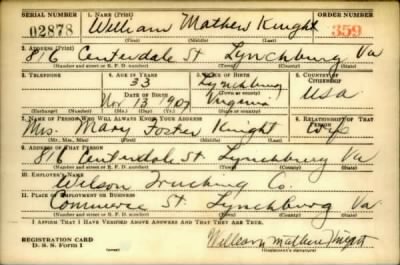 SERIAL NUMBER 1. NAME (Print) ORDER NUMBER
02878 William Mathew Knight 359
(First) (Middle) (Last)
2. ADDRESS (Print)
816 Centerdale St Lynchburg Va
(Number and street or R. F. D. number) (Town) (County) (State)
3. TELEPHONE 4. AGE IN YEARS 5. PLACE OF BIRTH 6. COUNTRY OF CITIZENSHIP
33 Lynchburg
DATE OF BIRTH (Town or county)
Nov 13 1907 Virginia USA
(Exchange) (Number) (Mo.) (Day) (Yr.) (State or country)
7. NAME OF PERSON WHO WILL ALWAYS KNOW YOUR ADDRESS 8. RELATIONSHIP OF THAT PERSON
Mrs. Mary Foster Knight Wife
(Mr., Mrs., Miss) (First) (Middle) (Last)
9. ADDRESS OF THAT PERSON
816 Centerdale St Lynchburg Va
(Number and street or R. F. D. number) (Town) (County) (State)
10. EMPLOYER'S NAME
Wilson Trucking Co.
11. PLACE OF EMPLOYMENT OR BUSINESS
Commerce St Lynchburg Va
(Number and street or R. F. D. number) (Town) (County) (State)
I AFFIRM THAT I HAVE VERIFIED ABOVE ANSWERS AND THAT THEY ARE TRUE.
REGISTRATION CARD
D. S. S. Form 1 William Mathew Knight
(Registrant's signature)